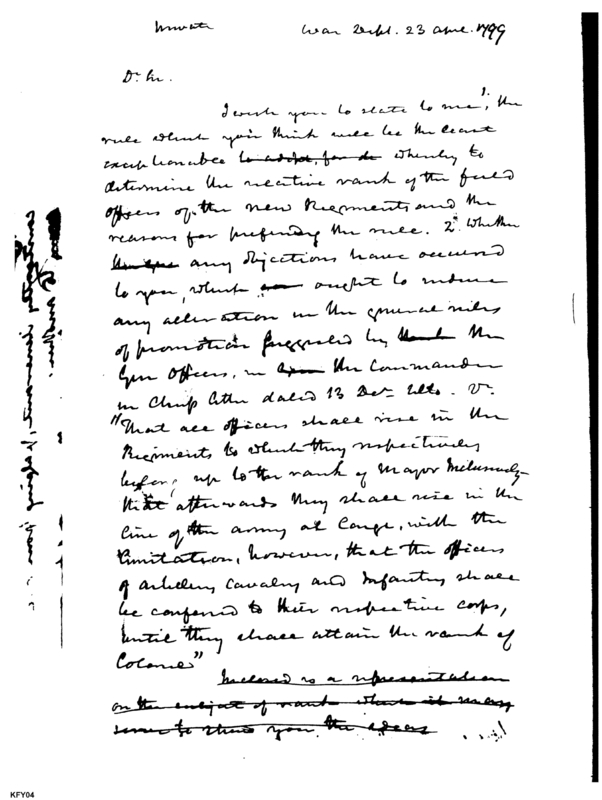 Private War Dept. 23 April 1799
Dr Sir.
I wish you to state to me, 1. the
rule which you think will be the least
exceptionable to adopt, for de whereby to
determine the relative rank of the field
officers of the new Regiments and the
reasons for preferring the rule. 2d. Whether
any objections have occurred
to you, which ought to induce
any alteration in the general rules
of promotion suggested by the
Gen Officers, in the Commander
in Chiefs letter dated 13 Decr. Ulto. Vz.
"That all officers shall rise in the
Regiments to which they respectively
belong, up to the rank of Major Inclusively
that afterwards they shall rise in the
line of the army at large, with the
limitation, however, that the officers
of artillery Cavalry and Infantry shall
be confined to their respective corps,
until they shall attain the rank of
Colonel"
Inclosed is a representation
on the subject of rank which it may
serve to shew you the ideas
KFY04